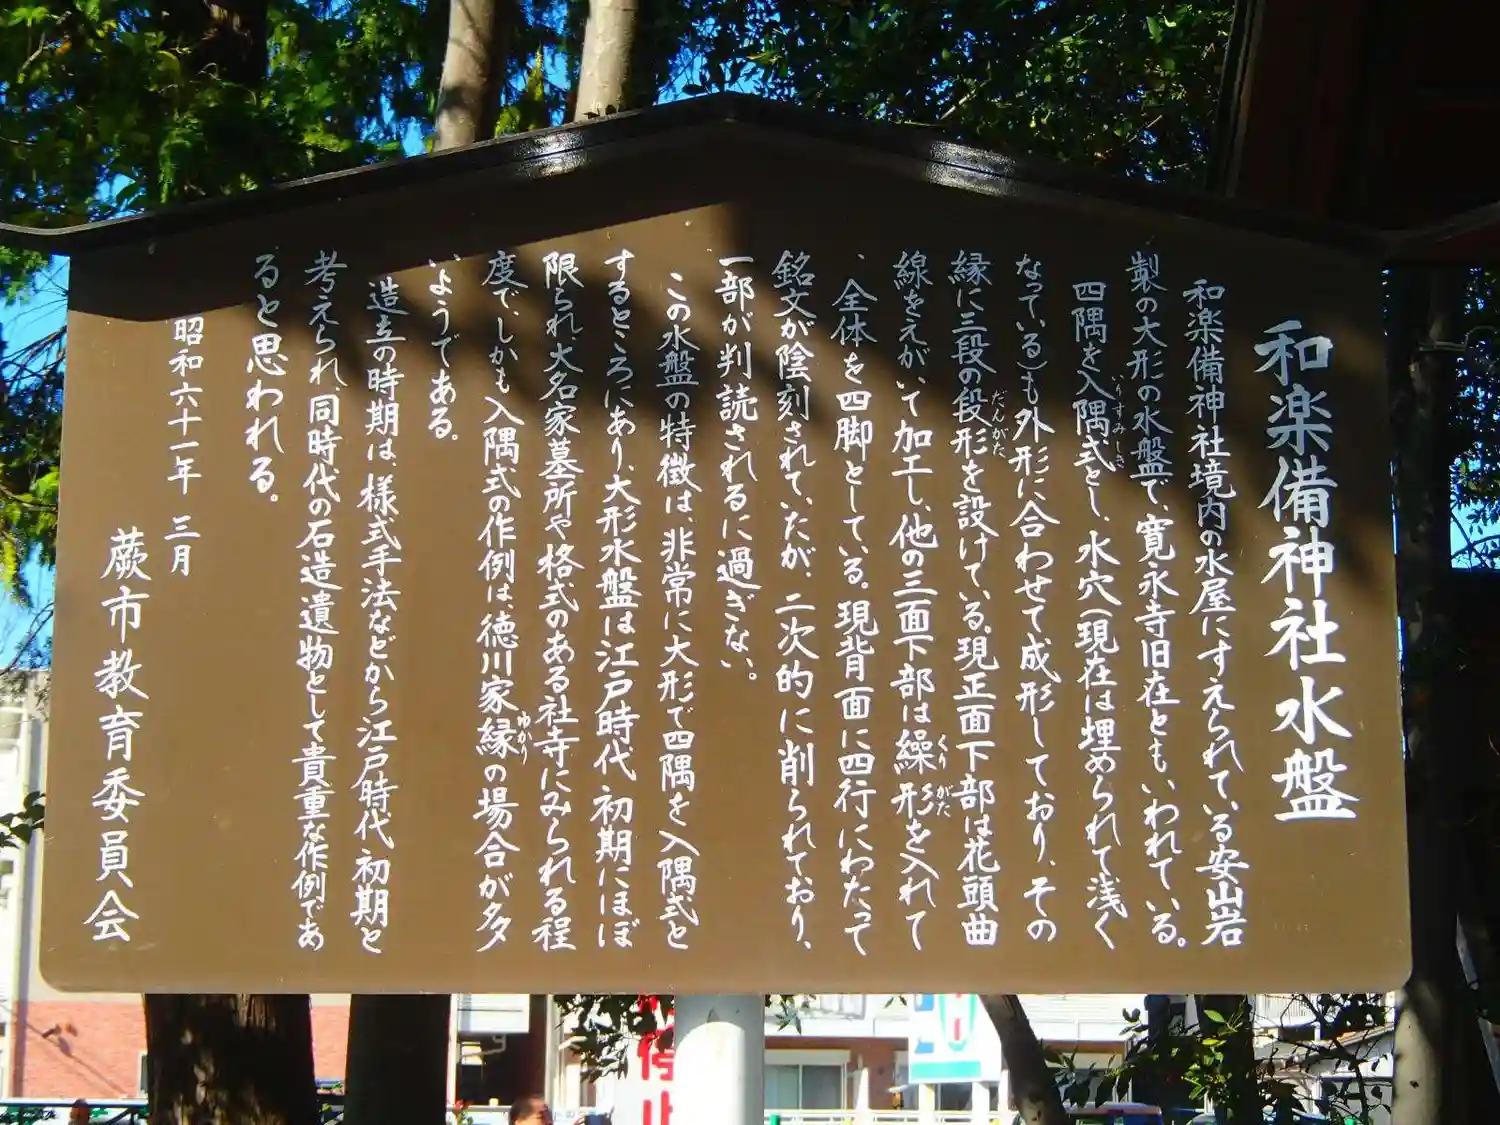 和楽備神社水盤
和楽備神社境内の水屋にすえられている安山岩
製の大形の水盤で、寛永寺旧在ともいわれている。
四隅を入隅式とし、水穴(現在は埋められて浅く
いりすみしき
なっている)も外形に合わせて成形しており、その
縁に三段の段形を設けている。現正面下部は花頭曲
だんがた
線をえがいて加工し、他の三面下部は繰形を入れて
くりがた
、全体を四脚としている。現背面に四行にわたって
銘文が陰刻されていたが、二次的に削られており、
一部が判読されるに過ぎない。
この水盤の特徴は、非常に大形で四隅を入隅式と
するところにあり、大形水盤は江戸時代初期にほぼ
限られ、大名家墓所や格式のある社寺にみられる程
度で、しかも入隅式の作例は、徳川家縁の場合が多
ゆかり
いようである。
造立の時期は、様式手法などから江戸時代初期と
考えられ、同時代の石造遺物として貴重な作例であ
ると思われる。
昭和六十一年三月
蕨市教育委員会
停止